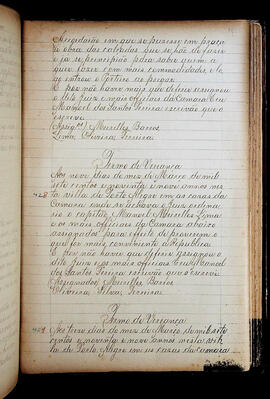 em que se
a obra das calçadas que se hão de fazer
e já se principião para saber quem a
quer fazer com mais comodidades, e lo
go entrou o Porteiro ao pregar
E por não haver mais que deferir assignou
o dito Juiz e mais officiaes da Camara Eu
Manoel dos Santos Ferreira escrivão que o
escrevi
(Assign.os) Meirelles Barros
Lima, Oliveira, Ferreira
Termo de Veriança
Aos nove dias do mez de Março de mil
sete centos e noventa e nove annos nes
428 ta villa de Porto Alegre em as casas da
Camara onde se achava o Juiz ordina
rio o capitão Manoel Meirelles Lima
e os mais officiaes da Camara abaixo
assignados para efeito de proverem o
que for mais conveniente á Republica.
E por não haver que deferir assignou o
dito Juiz e os mais officiaes Eu Manoel
dos Santos Ferreira escrivão que o escrevi
Assignados Meirelles Barros
Oliveira, Silva, Ferreira
Termo de Veriança
429 Aos treze dias do mez de Março de mil sete
centos e noventa e nove annos nesta vil
la de Porto Alegre em as casas da camara